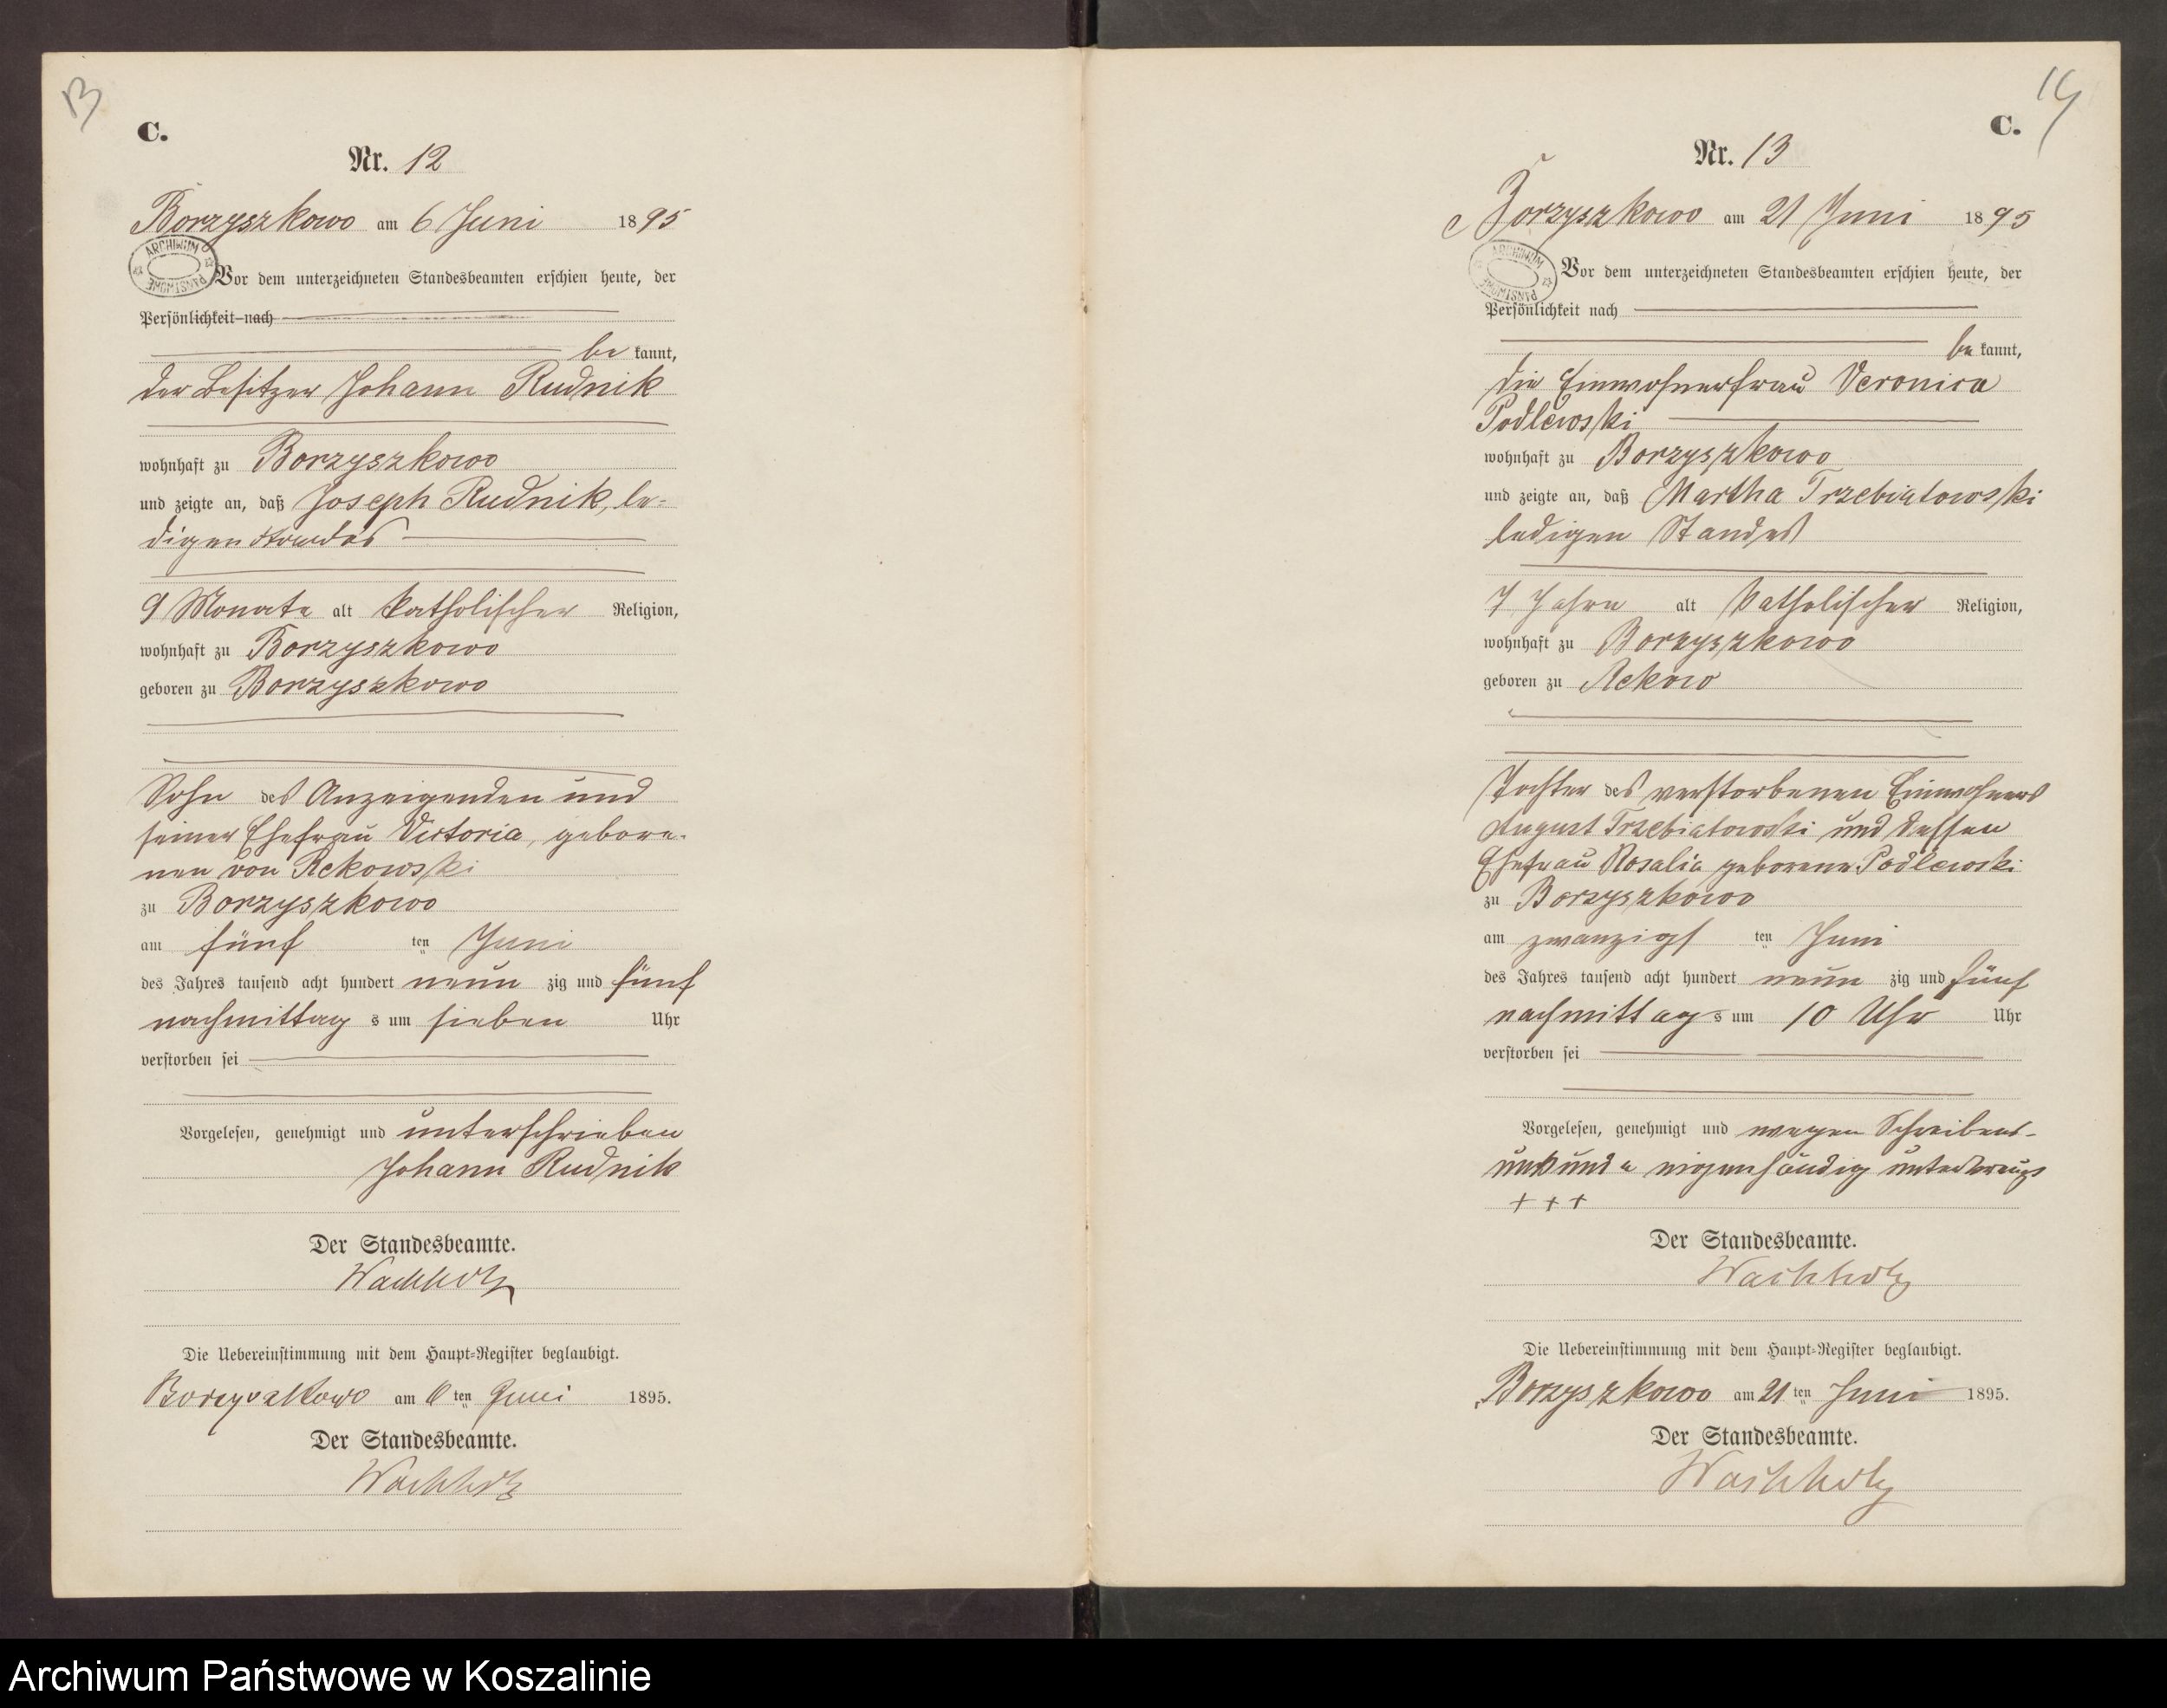 13
C.
Nr. 12
Borzyszkowo am 6 Juni 1895
ARCHIWUM PAŃSTWOWE
Vor dem unterzeichneten Standesbeamten erschien heute, der
Persönlichkeit nach
be kannt,
der Besitzer Johann Rudnik
wohnhaft zu Borzyszkowo
und zeigte an, daß Joseph Rudnik, le-
digen Standes
9 Monate alt katholischer Religion,
wohnhaft zu Borzyszkowo
geboren zu Borzyszkowo
Sohn des Anzeigenden und
seiner Ehefrau Victoria, gebore-
nen von Rekowski
zu Borzyszkowo
am fünf ten Juni
des Jahres tausend acht hundert neun zig und fünf
nachmittag s um sieben Uhr
verstorben sei
Vorgelesen, genehmigt und unterschrieben
Johann Rudnik
Der Standesbeamte.
Wachholz
Die Uebereinstimmung mit dem Haupt-Register beglaubigt.
Borzyszkowo am 6 ten Juni 1895.
Der Standesbeamte.
Wachholz
14
C.
Nr. 13
Borzyszkowo am 21 Juni 1895
ARCHIWUM PAŃSTWOWE
Vor dem unterzeichneten Standesbeamten erschien heute, der
Persönlichkeit nach
be kannt,
die Einwohnerfrau Veronica
Podlewski
wohnhaft zu Borzyszkowo
und zeigte an, daß Martha Trzebiatowski
ledigen Standes
7 Jahre alt katholischer Religion,
wohnhaft zu Borzyszkowo
geboren zu Rekow
Tochter des verstorbenen Einwohners
August Trzebiatowski und dessen
Ehefrau Rosalia geborene Podlewski
zu Borzyszkowo
am zwanzigs ten Juni
des Jahres tausend acht hundert neun zig und fünf
nachmittag s um 10 Uhr Uhr
verstorben sei
Vorgelesen, genehmigt und wegen Schreibens-
unkunde eigenhändig unterkreuzt
+ + +
Der Standesbeamte.
Wachholz
Die Uebereinstimmung mit dem Haupt-Register beglaubigt.
Borzyszkowo am 21 ten Juni 1895.
Der Standesbeamte.
Wachholz
Archiwum Państwowe w Koszalinie